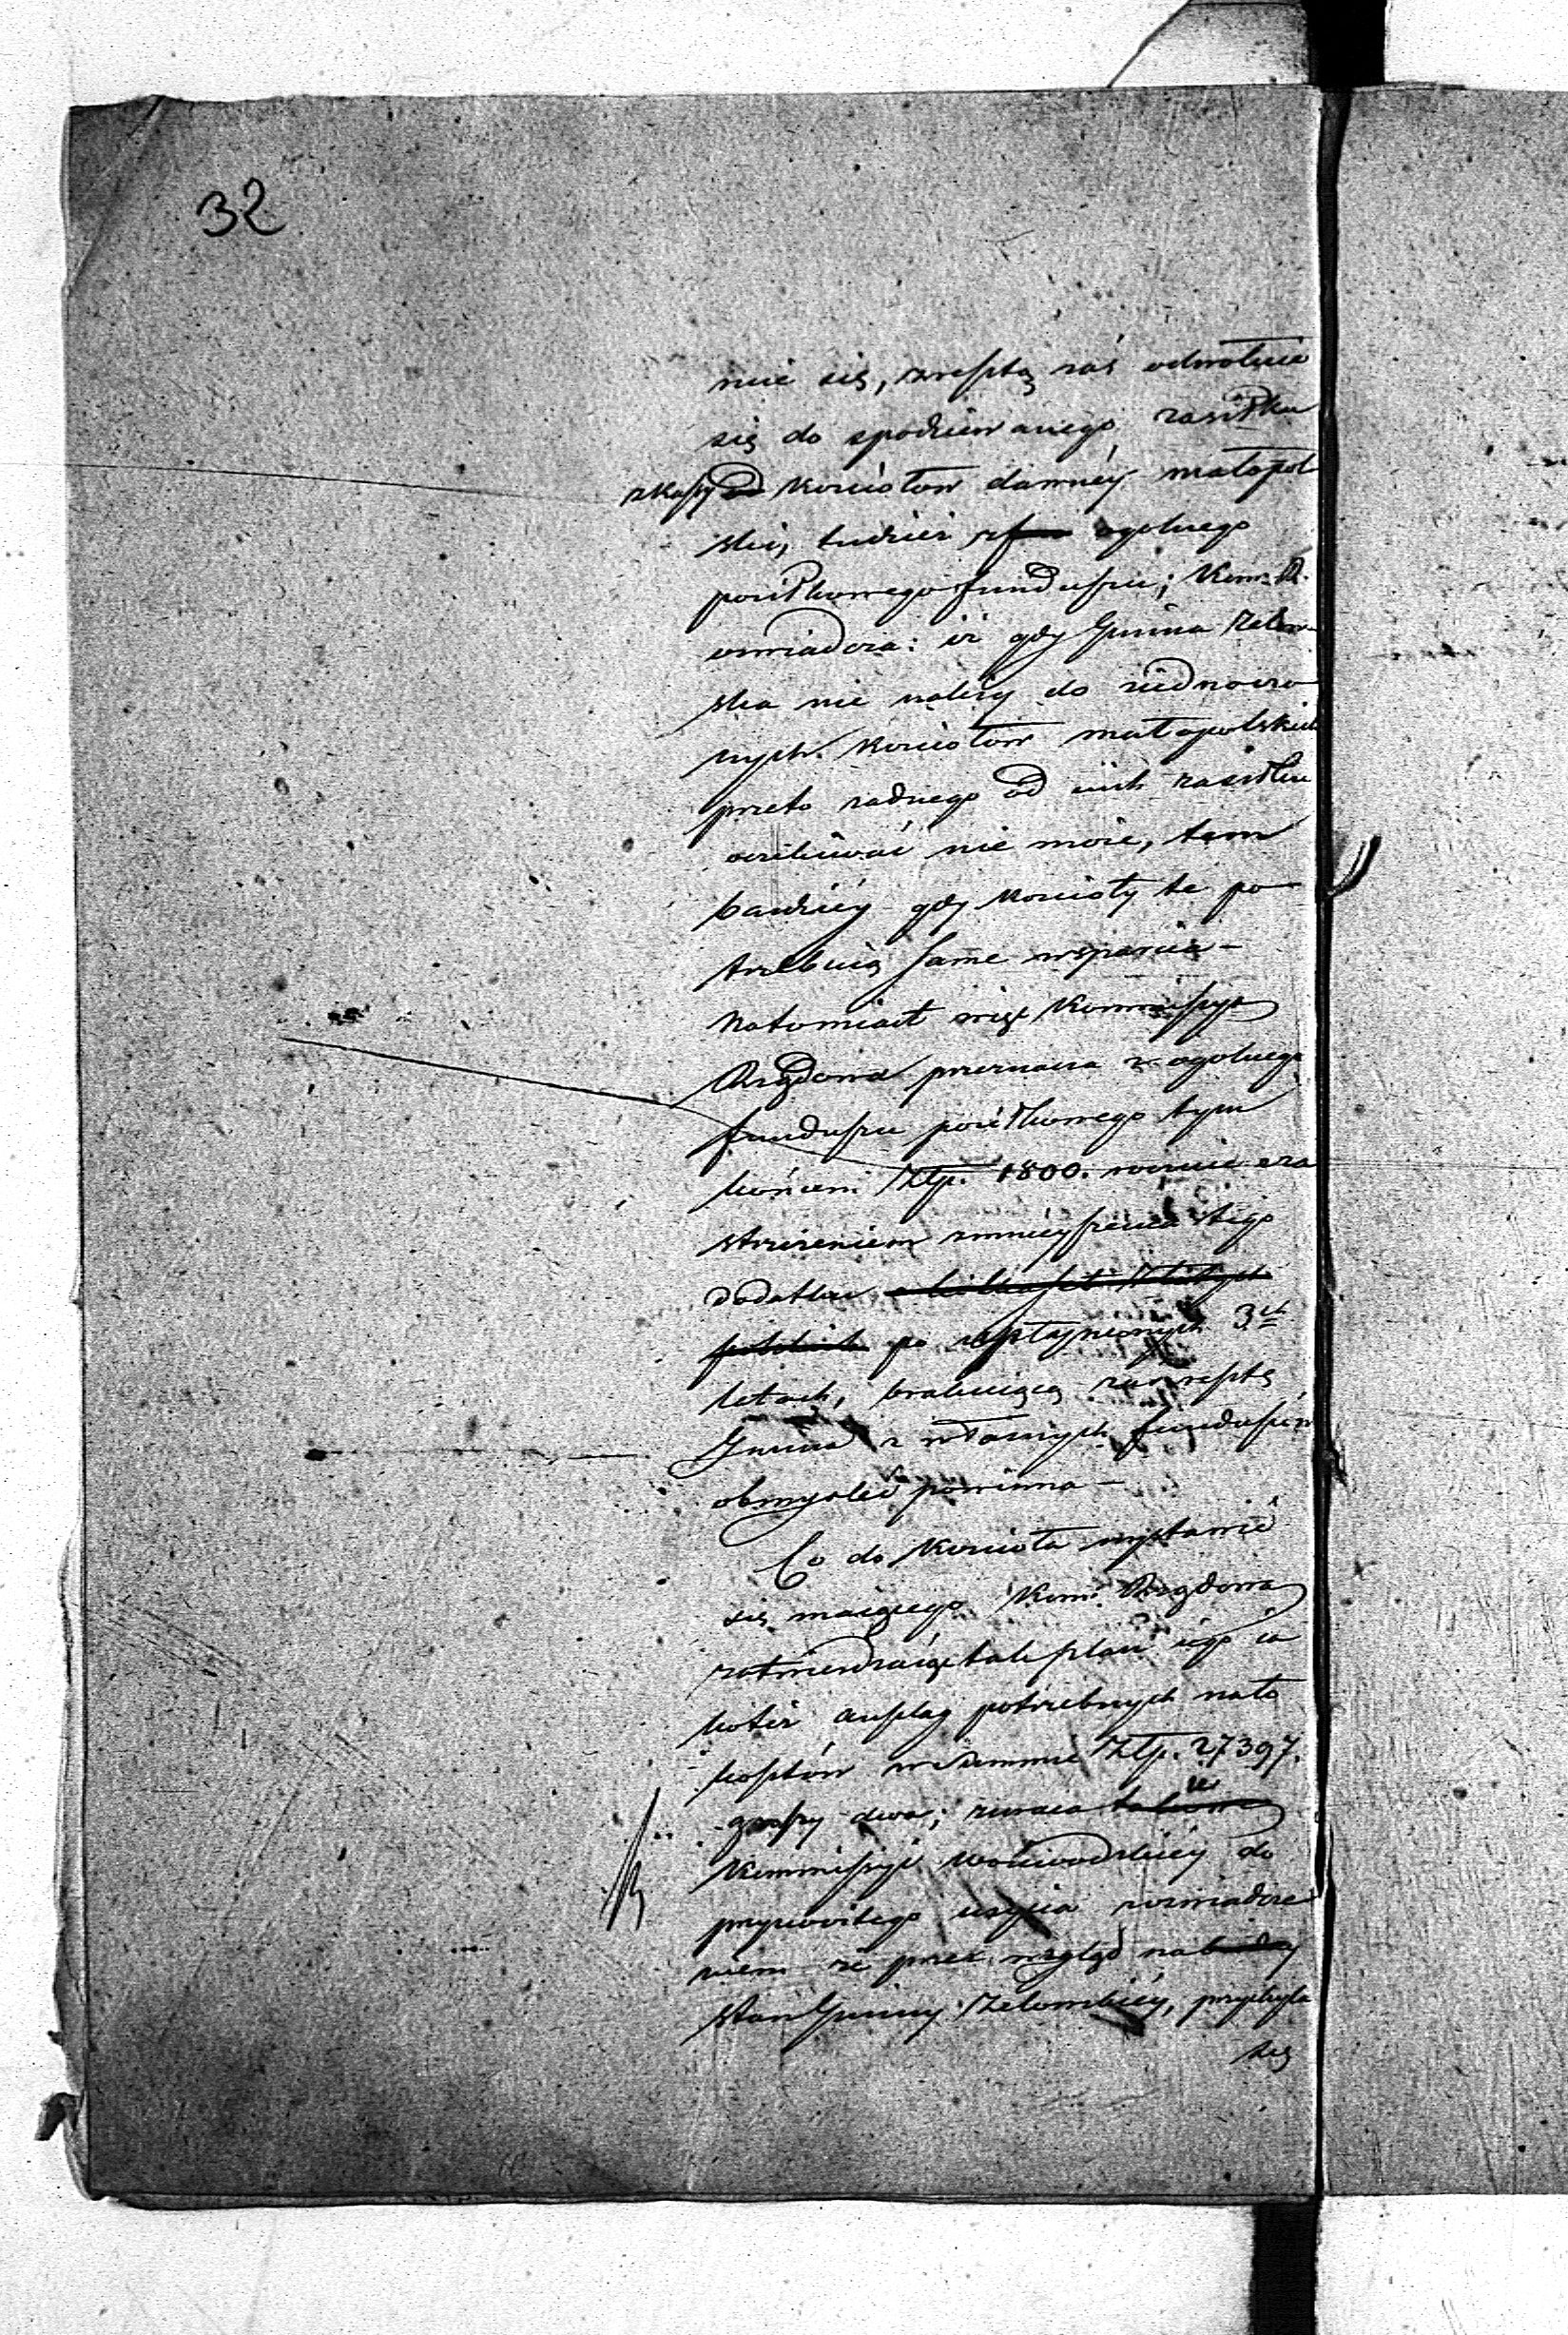 32
nie się, resztę zaś odwołuie
się do spodziewanego zasiłku
z kassy od kościołow dawnéy małopol
ski, tudzież z fun ogolnego
posiłkowego funduszu; Kom. R.
oswiadcza: iż gdy Gmina Zelow-
ska nie należy do ziednoczo
nych kosciołow małopolskich
przeto żadnego od nich zasiłku
oczekiwać nie może, tem
bardziéy gdy kościoły te po-
trzebuią same wsparcia –
Natomiast więc Kommissya
Rządowa przeznacza z ogolnego
funduszu posiłkowego tym
końcem Złp. 1800. rocznie z za
strzeżeniem zmnieyszenia tego
dodatku
po upłynionych 3ch
letach, brakuiącą zaś resztę
Gmina z własnych funduszów
obmyslić powinna –
Co do Kościoła wystawić
się maiącego Kom. Rządowa
zatwierdzaiąc tak plan iego ia
koteż anszlag potrzebnych na to
kosztów w summie Złp. 27397.
groszy dwa; zwraca ie
Kommissyi Woiewodzkiéy do
przyzwoitego użycia z oswiadcze
niem że przez wzgląd na
stan Gminy Zelowskiéy, przychyla
się